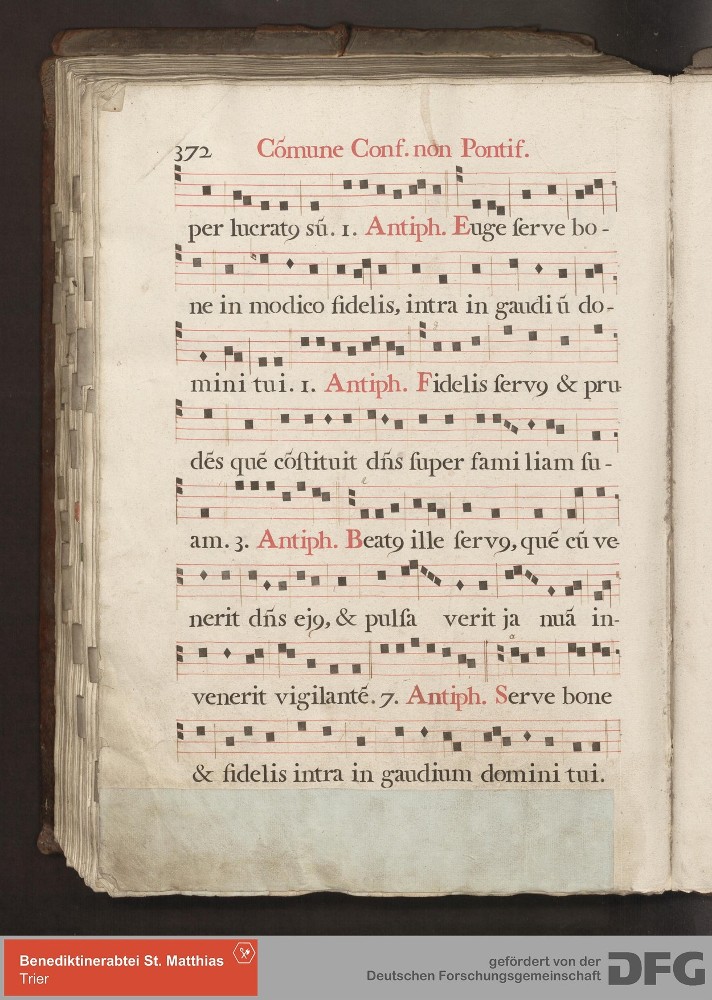 372 Cõmune Conf. non Pontif.
per lucrat9 sũ. 1. Antiph. Euge ſerve bo-
ne in modico fidelis, intra in gaudi ũ do-
mini tui. 1. Antiph. Fidelis ſerv9 & pru-
dẽs quẽ cõſtituit dñs ſuper fami liam ſu-
am. 3. Antiph. Beat9 ille ſerv9, quẽ cũ ve-
nerit dñs ej9, & pulſa verit ja nuã in-
venerit vigilantẽ. 7. Antiph. Serve bone
& fidelis intra in gaudium domini tui.
Benediktinerabtei St. Matthias
Trier
gefördert von der
Deutschen Forschungsgemeinschaft
DFG